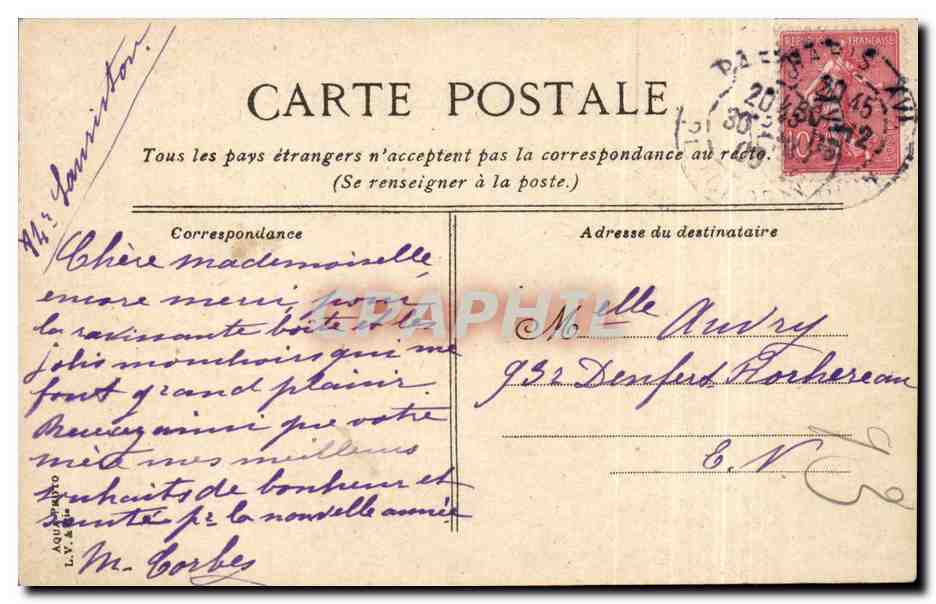 CARTE POSTALE
Tous les pays étrangers n'acceptent pas la correspondance au recto.
(Se renseigner à la poste.)
Correspondance
Adresse du destinataire
Lauriston
Chère mademoiselle
encore merci, pour
la ravissante boîte et les
jolis mouchoirs qui me
font grand plaisir
Recevez ainsi que votre
mère mes meilleurs
souhaits de bonheur et
santé pr la nouvelle année
M. Corbes
Melle Auvry
93r Denfert Rochereau
E.V
93
REPUBLIQUE FRANÇAISE
10
PARIS XVI
20 45
30 -12
CPAPHIL
AQUA PHOTO
L.V. & Cie